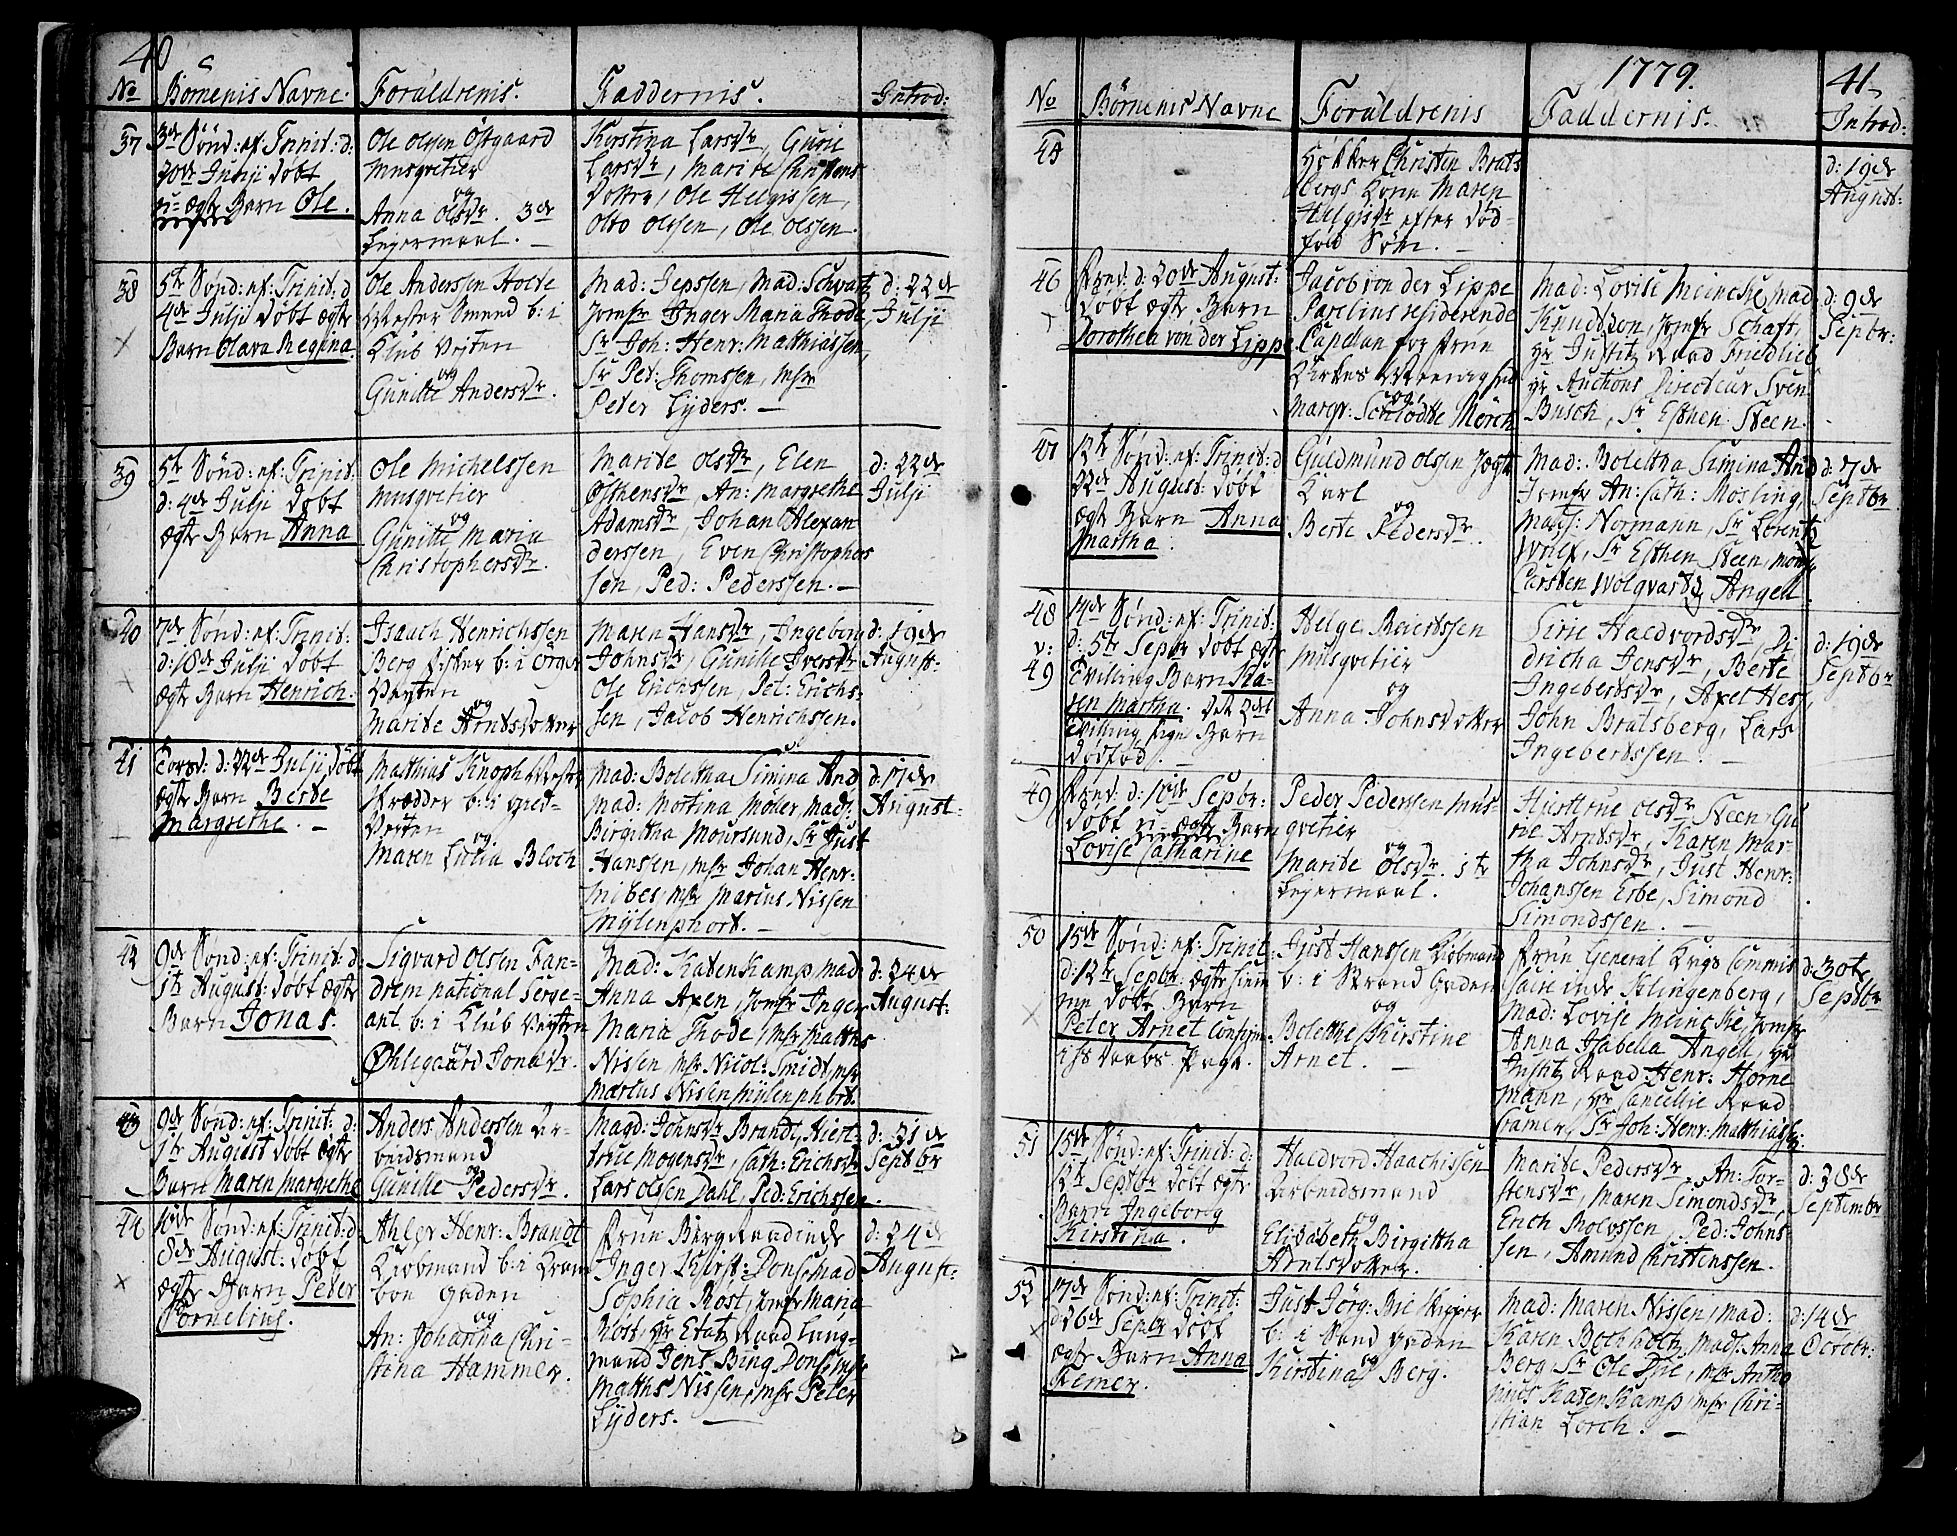 40
No Börnenis Navne. Forældrenis. Faddernis. Introd:
37
3de Sönd: ef: Trinit: d:
20de Julji döbt
u-ægte Barn Ole.
Ole Olsen Östgaard
Musqvetier
og
Anna Olsdr. 3de
Leyermaal.
Kirstina Larsdr, Guru
Larsdr, Marite Christens
Dotter, Ole Helgissen,
Oluo Olssen, Ole Olssen.
38
5te Sönd: ef: Trinit: d
4de Julji döbt ægte
Barn Olava Regina.
Ole Anderssen Holte
Mester Smed b: i
Klub Veyten
og
Gunille Andersdr.
Mad: Jepssen, Mad: Schvartz
Jomfr Inger Maria Thode,
Sr Joh: Henr: Matthiassen,
Sr Pet: Thomssen, Msr
Peter Lyders.
d: 22de
Julji
39
5te Sönd: ef: Trinit:
d: 4de Julji döbt
ægte Barn Anna
Ole Michelssen
Musqvetier
og
Gunille Maria
Christophersdr.
Marite Olsdr, Elen
Osthensdr, An: Margrethe
Adamsdr, Johan Alexan
derssen, Even Christophers
sen, Ped: Pederssen.
d: 22de
Julji
40
7de Sönd: ef: Trinit:
d: 18de Julji döbt
ægte Barn Henrich.
Isaach Henrichssen
Berg Fisker b: i Örger
Veyten
og
Marite Arntsdotter
Maren Hansdr, Ingeborg
Johnsdr, Gunilie Iversdr
Ole Erichssen, Pet: Erichs-
sen, Jacob Henrichssen.
d: 19de
August:
41
Torsd: d: 22de Julji döbt
ægte Barn Berte
Margrethe.
Matthias Knoph Mester
Skrædder b: i Smed-
Veyten
og
Maren Lucia Bloch
Mad: Bolettha Simina And
Mad: Mortina Möller, Mad:
Birgittha Moursund, Sr Just
Hanssen, Msr Johan Henr:
Mibes, Msr Marcus Nissen
Mylenphort.
d: 17de
August:
42
9de Sönd: ef: Trinit: d:
1te August: döbt ægte
Barn Jonas.
Sigvard Olsen Fan-
drem national Serge-
ant b: i Klub Veyten
og
Öhlegaard Jonasdr.
Mad: Katenkamp, Mad
Anna Axen, Jomfr Inger
Maria Thode, Msr Matths
Nissen Msr Nicol: Smidt, Msr
Marcus Nissen Mylenphort.
d: 24de
August:
43
9de Sönd: ef: Trinit: d:
1te August döbt ægte
Barn Maren Margrethe
Anders Anderssen Ar-
beidsmand
og
Gunille Pedersdr.
Magd: Johnsdr Brandt, Kiert-
strue Mogensdr, Cath: Erichsdr
Lars Olssen Dahl, Ped: Erichssen.
d: 31de
Septbr
44
10de Sönd: ef: Trinit: d
8de August: döbt
ægte Barn Peter
Cornelius.
Ahler Henr: Brandt
Kiöbmand b: i Kram
boe Gaden
og
An: Johanna Chri-
stina Hammer.
Frue Bergraadinde
Inger Kirst: Dons, Mad
Sophia Rost, Jomfr Maria
Rost, Hr Etatz Raad Lung-
mand Jens Bing Dons, Msr
Matths Nissen, Msr Peter
Lyders.
d: 24de
August:
1779. 41
No Börnenis Navne Forældrenis Faddernis. Introd:
45
Hökker Christen Brats
bergs Kone Maren
Helgisdr efter död-
föd Sön.
d: 19de
August:
46
Fred: d: 20de August:
döbt ægte Barn
Dorothea von der Lippe
Jacob von der Lippe
Parelius residerende
Capellan for Frue
Kirkes Menighed
og
Margr: Schlödte Mörch
Mad: Lovise Meincke, Mad
Knudtzon, Jomfr Schaft,
Hr Justitz Raad Friedlieb
Hr Auctions Directeur Sven
Busch, Sr Esthen Steen.
d: 9de
Sepbr:
47
12te Sönd: ef: Trinit: d
22de August: döbt
ægte Barn Anna
Martha.
Guldmund Olssen Jægt
Karl
og
Berte Pedersdr.
Mad: Bolettha Simina And
Jomfr An: Cath: Mösling,
Mads: Normann, Sr Lorentz
Wulf, Sr Esthen Steen, Mons
Carsten Wolqvartz Angell.
d: 7de
Septbr
48
v:
49
14de Sönd: ef: Trinit:
d: 5te Sepbr döbt ægte
Tvilling Barn Ka-
ren Martha. Det 2det
Tvilling Pige Barn
dödföd.
Helge Reierssen
Musqvetier
og
Anna Johnsdotter
Sirie Haldvordsdr, Di
dricha Jensdr, Berte
Ingebertsdr, Axel Hes,
John Bratsberg, Lars
Ingebertssen.
d: 19de
Septbr
49
Fred: d: 10de Sepbr:
döbt u-ægte Barn
Lovise Catharine
Peder Pederssen Mus-
qvetier
og
Marite Olsdr. 1te
Leyermaal.
Kierstrue Olsdr Steen, Gu
rue Arntsdr, Karen Mar-
tha Johnsdr, Just Henr:
Johanssen Erbe, Simond
Simondssen.
50
15de Sönd: ef: Trinit:
d: 12te Sepbr ægte hiem
me döbt Barn
Peter Arnet Consirm-
ets Daabs Pagt.
Just Hanssen Kiöbmand
b: i Strand Gaden
og
Bolette Kirstine
Arnet.
Frue General Krigs Commis
sairinde Klingenberg,
Mad: Lovise Meincke, Jomfr
Anna Isabella Angell, Hr
Justitz Raad Henr: Horne
mann, Hr Cancellie Raad
Cramer, Sr Joh: Henr: Matthiassen
d: 30te
Septbr
51
15de Sönd: ef: Trinit: d:
12te Septbr döbt ægte
Barn Ingeborg
Kirstina.
Haldvord Haachissen
Arbeidsmand
og
Elisabeth Birgittha
Arntsdotter.
Marite Pedersdr, An: Tor-
stensdr, Maren Simondsdr,
Erich Rolvssen, Ped: Johns
sen, Amund Christenssen.
d: 28de
Septembr
52
17de Sönd: ef: Trinit:
d: 26de Sepbr döbt
ægte Barn Anna
Remer.
Just Jörg: Bie Skipper
b: i Sand Gaden
og
Kirstina Berg.
Mad: Maren Nissen, Mad:
Karen Bochholtz, Mads: Anna
Berg, Sr Ole Due, Msr Antho
nius Katenkamp, Msr Chri-
stian Lorch.
d: 14de
Octobr: